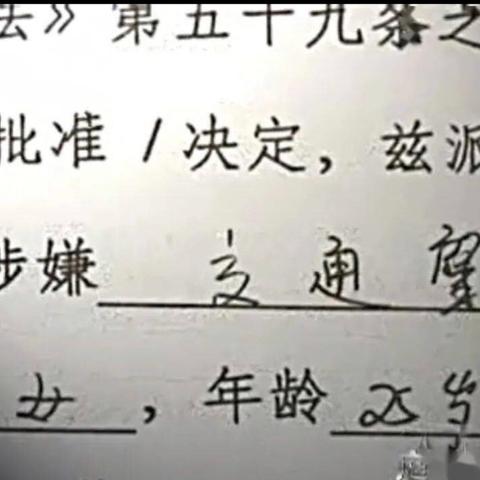 法》第五十九条之
批准/决定，兹派
涉嫌 交通肇
女，年龄 25岁